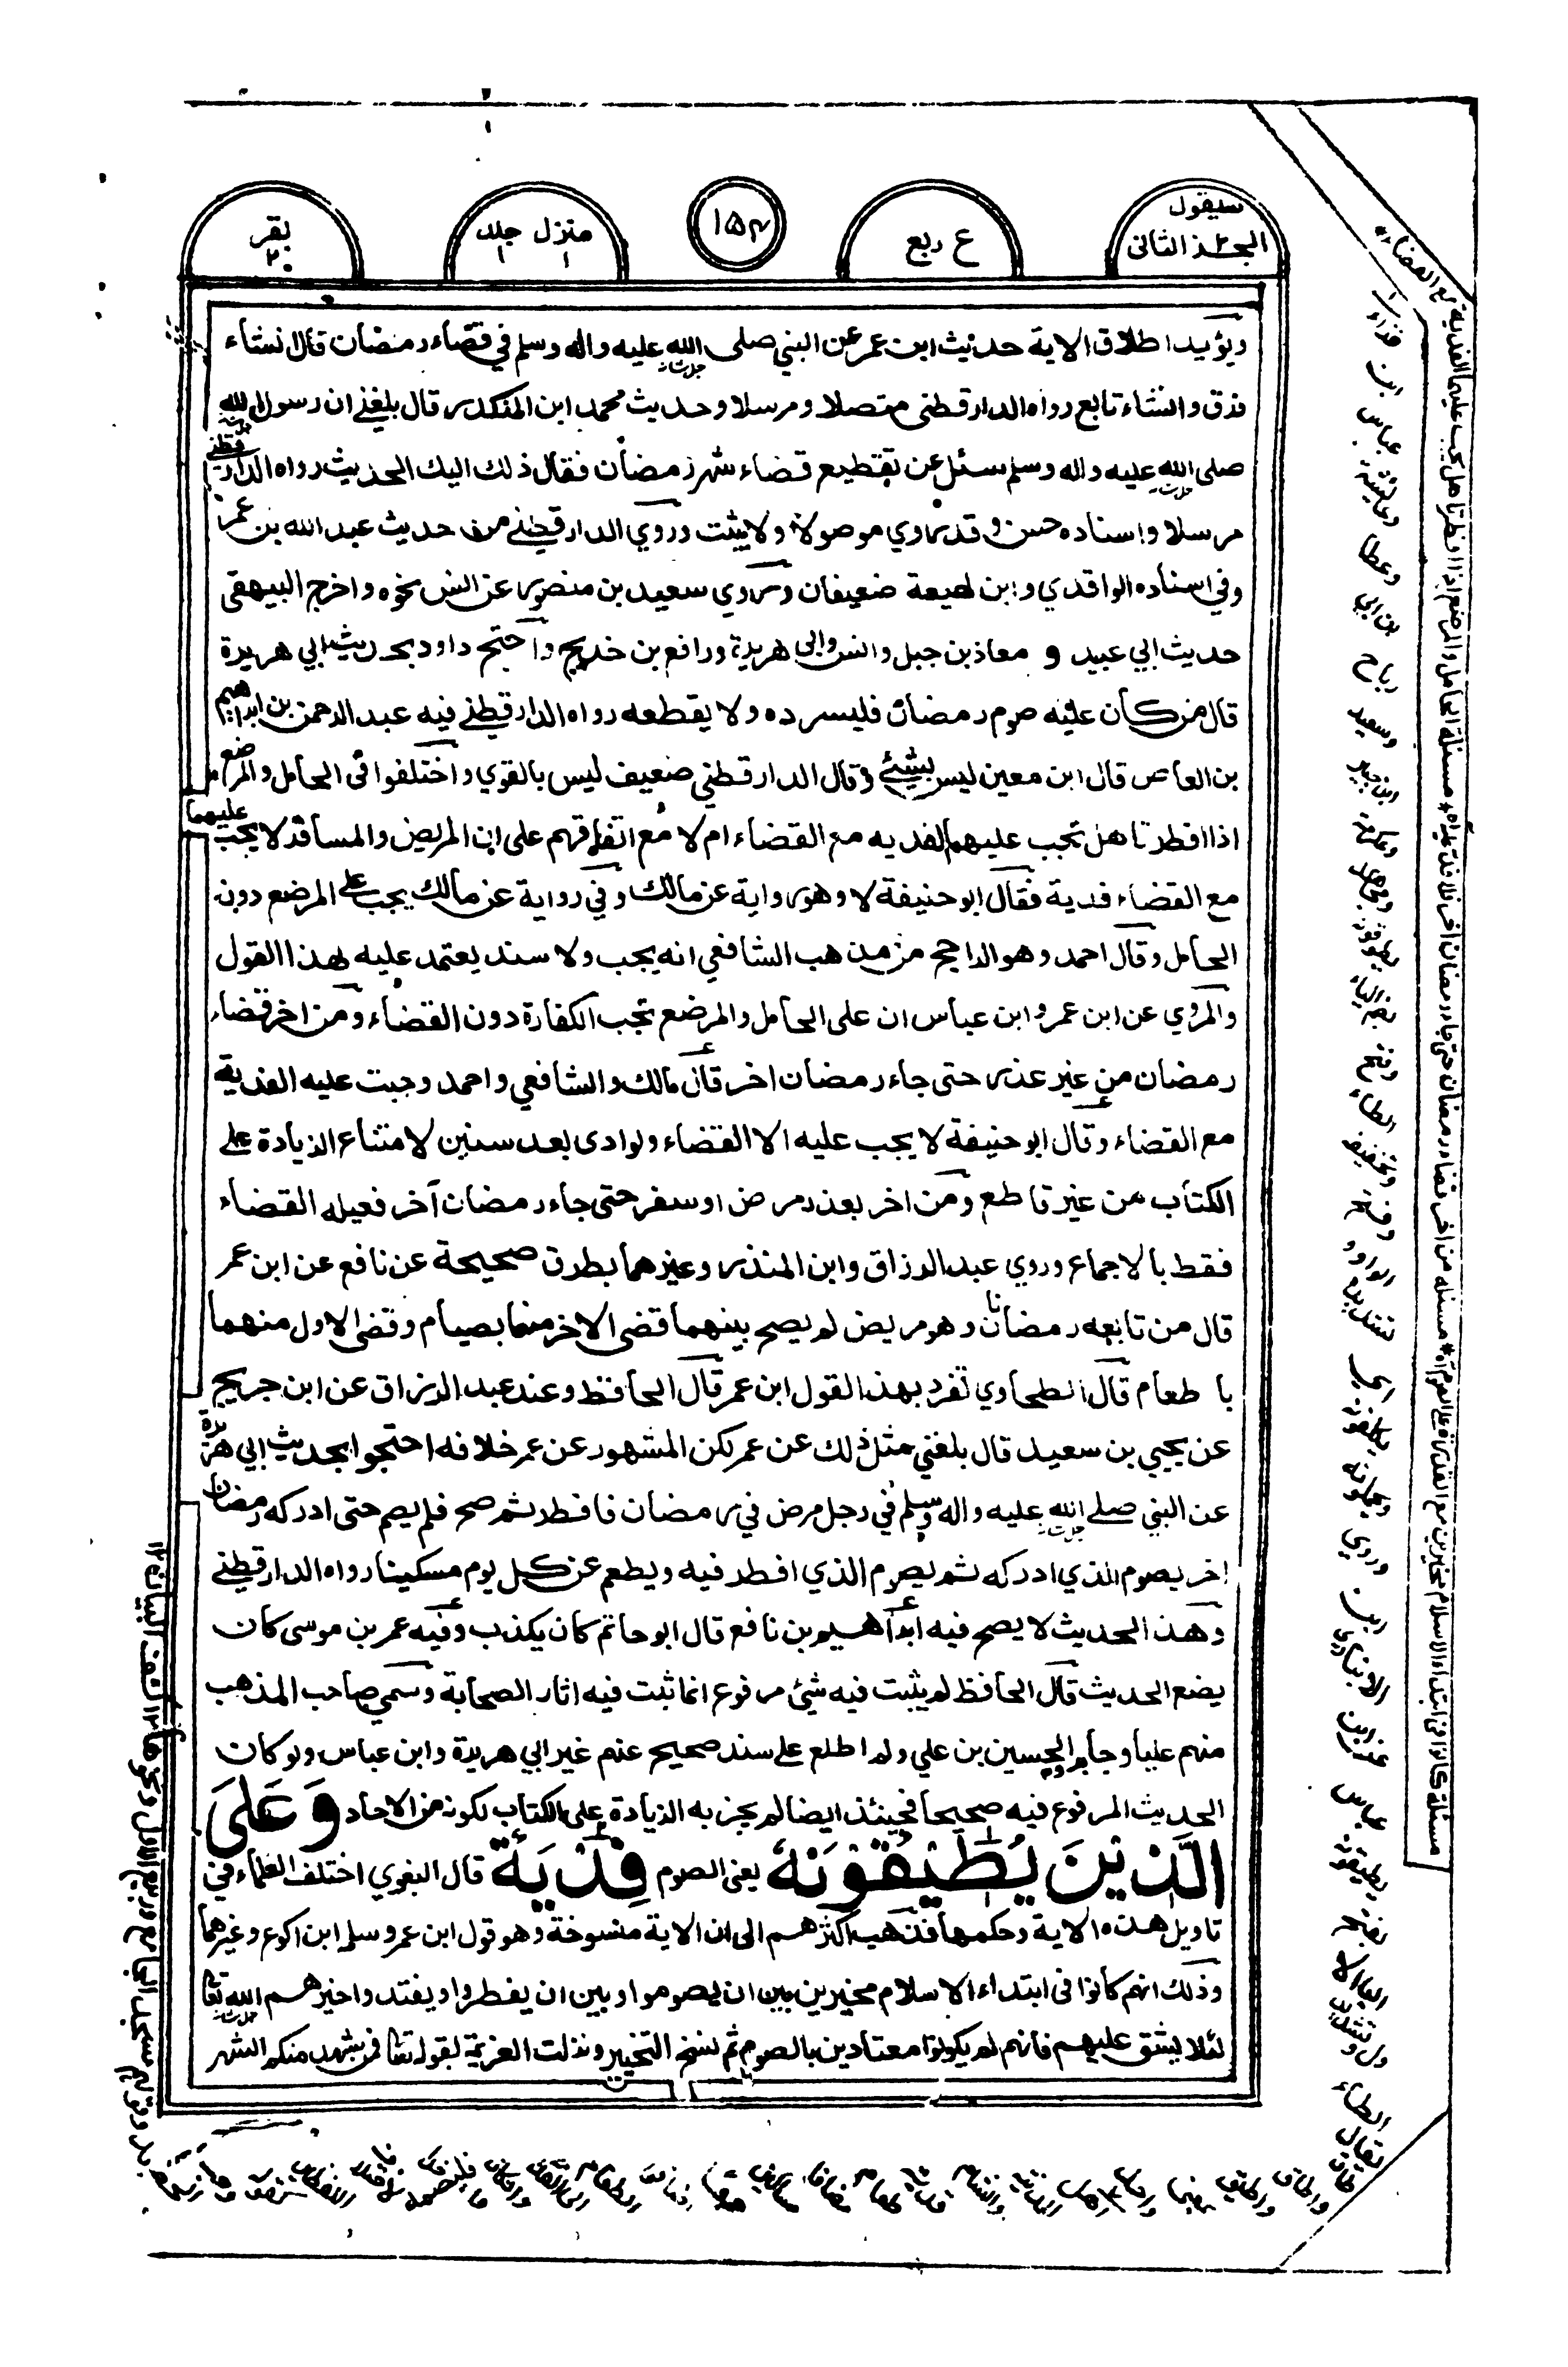 سيقول
الجزء الثانى ٢
ع ربع
١٥٤
منزل ١ جلد ١
بقر ٢
ويؤيد اطلاق الاية حديث ابن عمر عن النبي صلى الله عليه واله وسلم في قضاء رمضان قال ان شاء
فرق وان شاء تابع رواه الدارقطني متصلا ومرسلا وحديث محمد ابن المنكدر قال بلغني ان رسول الله
صلى الله عليه واله وسلم سئل عن تقطيع قضاء شهر رمضان فقال ذلك اليك الحديث رواه الدارقطني
مرسلا واسناده حسن وقد روي موصولا ولا يثبت وروي الدارقطني من حديث عبد الله بن عمر
وفي اسناده الواقدي وابن لهيعة ضعيفان وروي سعيد بن منصور عن انس نحوه واخرج البيهقى
حديث ابي عبيد و معاذ بن جبل وانس وابي هريرة ورافع بن خديج واحتج داود بحديث ابي هريرة
قال من كان عليه صوم رمضان فليسرده ولا يقطعه رواه الدارقطني فيه عبد الرحمن بن ابراهيم
بن العاص قال ابن معين ليس بشئ وقال الدارقطني ضعيف ليس بالقوي واختلفوا فى الحامل والمرضع
اذا افطرتا هل تجب عليهما الفديه مع القضاء ام لا مع اتفاقهم على ان المريض والمسافر لا يجب عليهما
مع القضاء فدية فقال ابو حنيفة لا وهو رواية عن مالك وفي رواية عن مالك يجب على المرضع دون
الحامل وقال احمد وهو الراجح من مذهب الشافعي انه يجب ولا سند يعتمد عليه لهذا القول
والمروي عن ابن عمر وابن عباس ان على الحامل والمرضع تجب الكفارة دون القضاء ومن اخر قضاء
رمضان من غير عذر حتى جاء رمضان اخر قال مالك والشافعي واحمد وجبت عليه الفدية
مع القضاء وقال ابو حنيفة لا يجب عليه الا القضاء ولو ادى بعد سنين لامتناع الزيادة على
الكتاب من غير قاطع ومن اخر بعذر مرض او سفر حتى جاء رمضان آخر فعليه القضاء
فقط بالاجماع وروي عبد الرزاق وابن المنذر وغيرهما بطرق صحيحة عن نافع عن ابن عمر
قال من تابعه رمضانان وهو مريض لم يصح بينهما قضى الاخر منهما بصيام وقضى الاول منهما
با طعام قال الطحاوي تفرد بهذا القول ابن عمر قال الحافظ وعند عبد الرزاق عن ابن جريج
عن يحيي بن سعيد قال بلغني مثل ذلك عن عمر لكن المشهور عن عمر خلافه احتجوا بحديث ابي هريرة
عن النبي صلے الله عليه واله وسلم في رجل مرض في رمضان فافطر ثم صح فلم يصم حتى ادركه رمضان
اخر يصوم الذي ادركه ثم يصوم الذي افطر فيه ويطعم عن كل يوم مسكينا رواه الدارقطني
وهذا الحديث لا يصح فيه ابراهيم بن نافع قال ابو حاتم كان يكذب وفيه عمر بن موسى كان
يضع الحديث قال الحافظ لم يثبت فيه شئ مرفوع انما ثبت فيه اثار الصحابة وسمي صاحب المذهب
منهم عليا وجابرا والحسين بن علي ولم اطلع على سند صحيح عنهم غير ابي هريرة وابن عباس ولو كان
الحديث المرفوع فيه صحيحا فحينئذ ايضا لم يجز به الزيادة على الكتاب لكونه من الاحاد وَعَلَى
الَّذِيْنَ يُطِيْقُوْنَهٗ يعني الصوم فِدْيَةٌ قال البغوي اختلف العلماء في
تاويل هذه الاية وحكمها فذهب اكثرهم الى ان الاية منسوخة وهو قول ابن عمر وسلمه ابن اكوع وغيرهما
وذلك انهم كانوا فى ابتداء الاسلام مخيرين بين ان يصوموا وبين ان يفطروا ويفتدوا خيرهم الله تعالى
لئلا يشق عليهم فانهم لم يكونوا معتادين بالصوم ثم نسخ التخيير ونزلت العزيمة لقوله تعالى فمن شهد منكم الشهر
مسئلة الحامل والمرضع اذا افطرتا هل يجب عليهما الفدية مع القضاء
مسئله من اخر قضاء رمضان حتى جاء رمضان اخر
مسئلة كانوا فى ابتداء الاسلام مخيرين
قراءة
ابن
عباس
وعائشة
وعطا
بن ابي
رباح
وسعيد
ابن جبير
وعكرمة
ومجاهد
يطوقونه
بضم الياء
وفتح
الطاء
وتخفيف
وفتح
الواو
وتشديده
اي
يكلفونه
وروي
ابن
الانباري
عن ابن
عباس
يطيقونه
بفتح
الياء الا
ولى وتشديد
الطاء